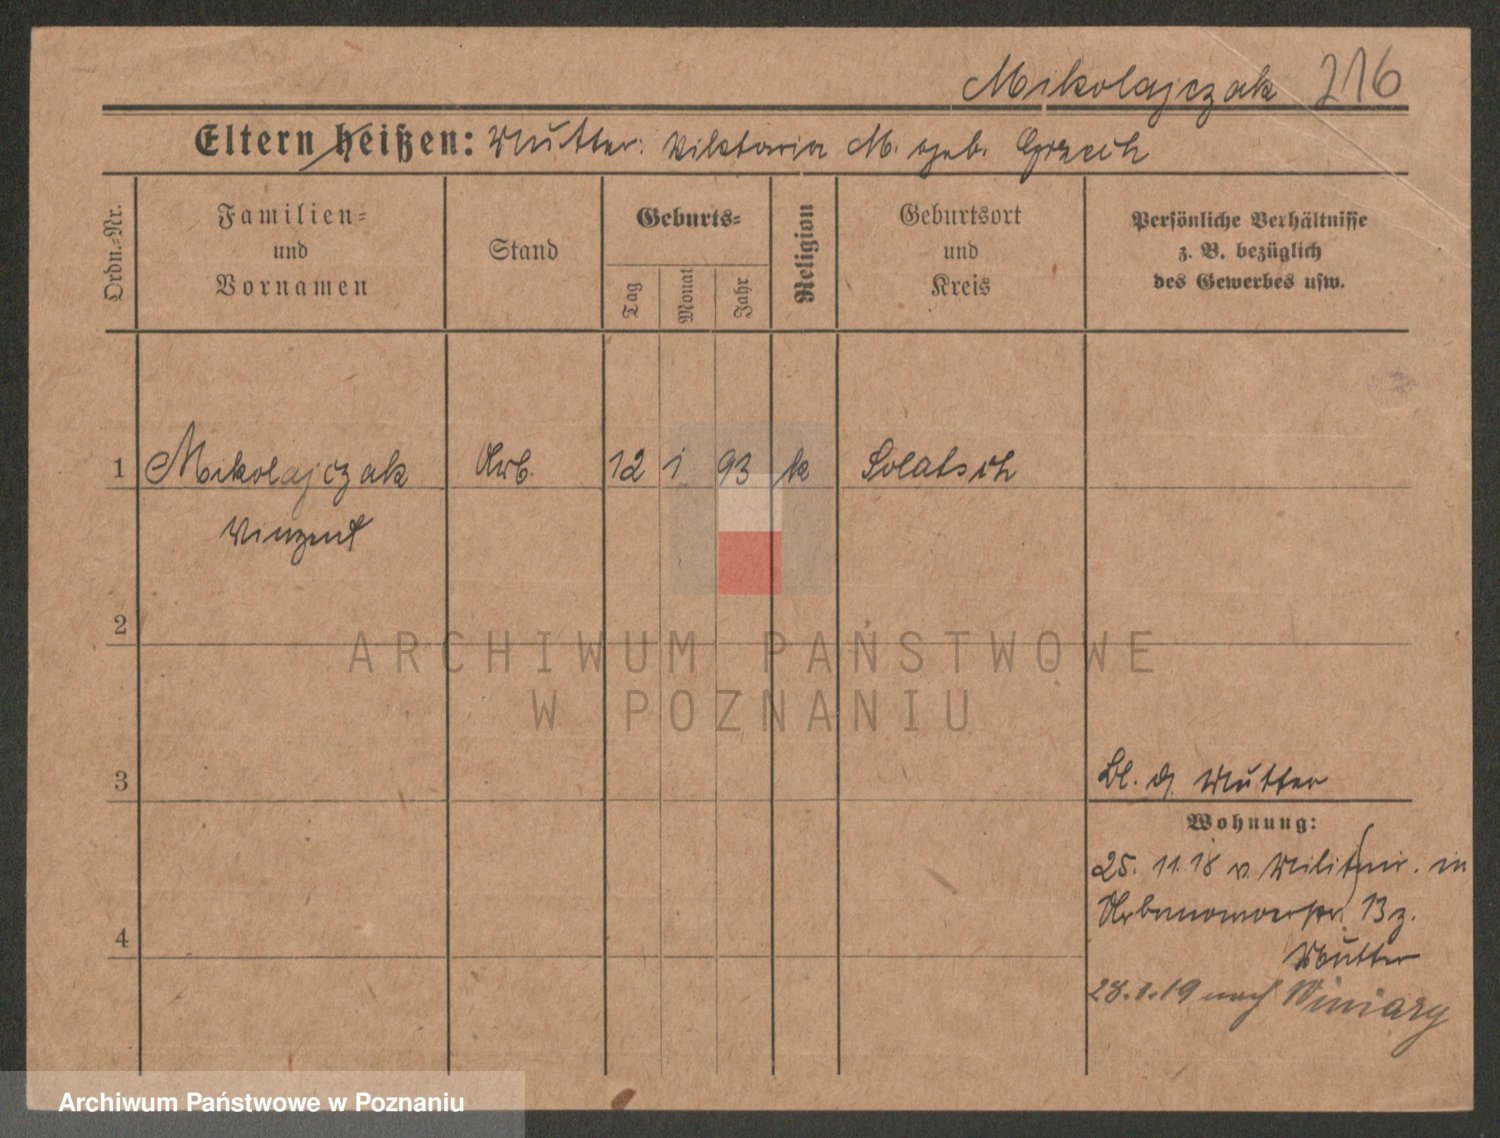 Mikolajczak 216
Eltern heißen: Mutter: Viktoria M. geb. Grzech
Ordn.=Nr.
Familien=
und
Vornamen
Stand
Geburts=
Tag
Monat
Jahr
Religion
Geburtsort
und
Kreis
Persönliche Verhältnisse
z. B. bezüglich
des Gewerbes usw.
1 Mikolajczak Arb. 12 1 93 k Solatsch
Vinzent
2
3
Bl. d. Mutter
Wohnung:
25. 11. 18 v. Militär in
13 z.
4
Mutter
nach Winiary
ARCHIWUM PAŃSTWOWE
W POZNANIU
Archiwum Państwowe w Poznaniu